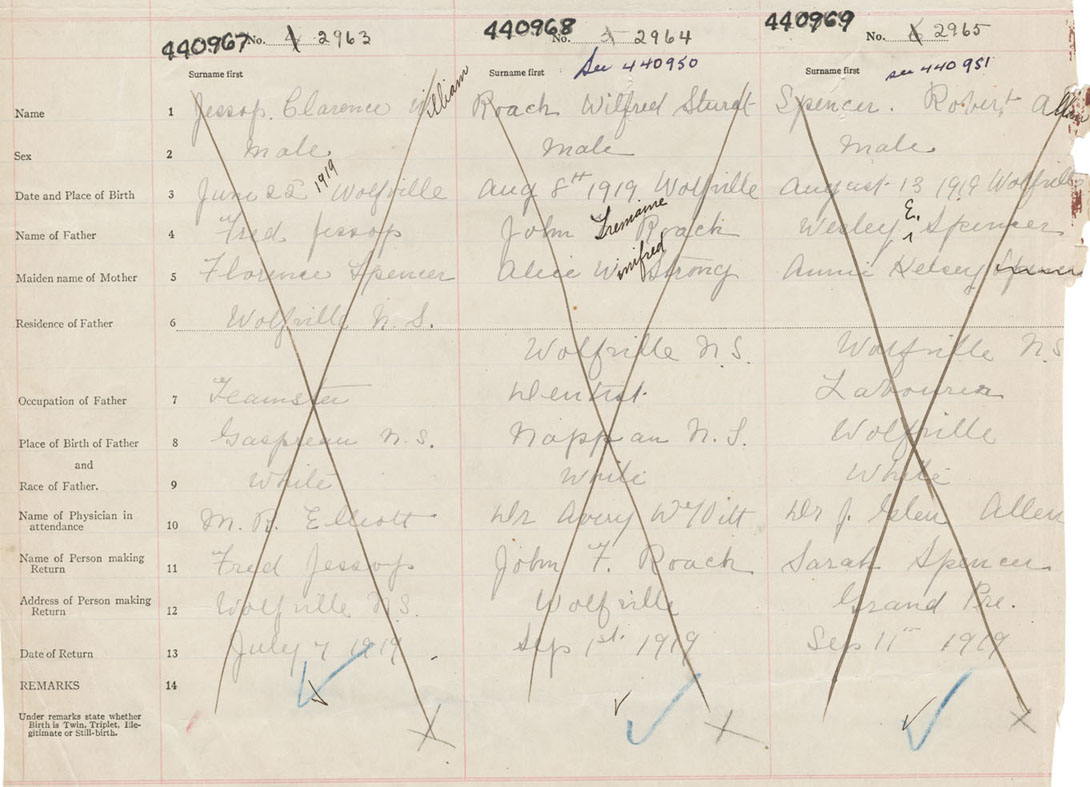 440967 No. 4 2963 440968 No. 5 2964 440969 No. 6 2965
Surname first Surname first See 440950 Surname first see 440951
Name 1 Jessop. Clarence William Roach Wilfred Spencer. Robert
Sex 2 Male Male Male
Date and Place of Birth 3 June 22 1919 Wolfville Aug 8th 1919 Wolfville August 13 1919 Wolfville
Name of Father 4 Fred Jessop John Tremaine Roach Wesley E. Spencer
Maiden name of Mother 5 Florence Spencer Alice Winifred Strong Annie Kelsey
Residence of Father 6 Wolfville N.S.
Wolfville N.S. Wolfville N.S
Occupation of Father 7 Teamster Dentist Labourer
Place of Birth of Father 8 Gaspreau N.S. Nappan N.S. Wolfville
and
Race of Father. 9 White White White
Name of Physician in
attendance 10 M. R. Elliott Dr Avery DeWitt Dr J. Glen Allen
Name of Person making
Return 11 Fred Jessop John F. Roach Sarah Spencer
Address of Person making
Return 12 Wolfville N.S. Wolfville Grand Pre.
Date of Return 13 July 7 1919 Sep 1st 1919 Sep 11th 1919
REMARKS 14
Under remarks state whether
Birth is Twin, Triplet, Ille-
gitimate or Still-birth.